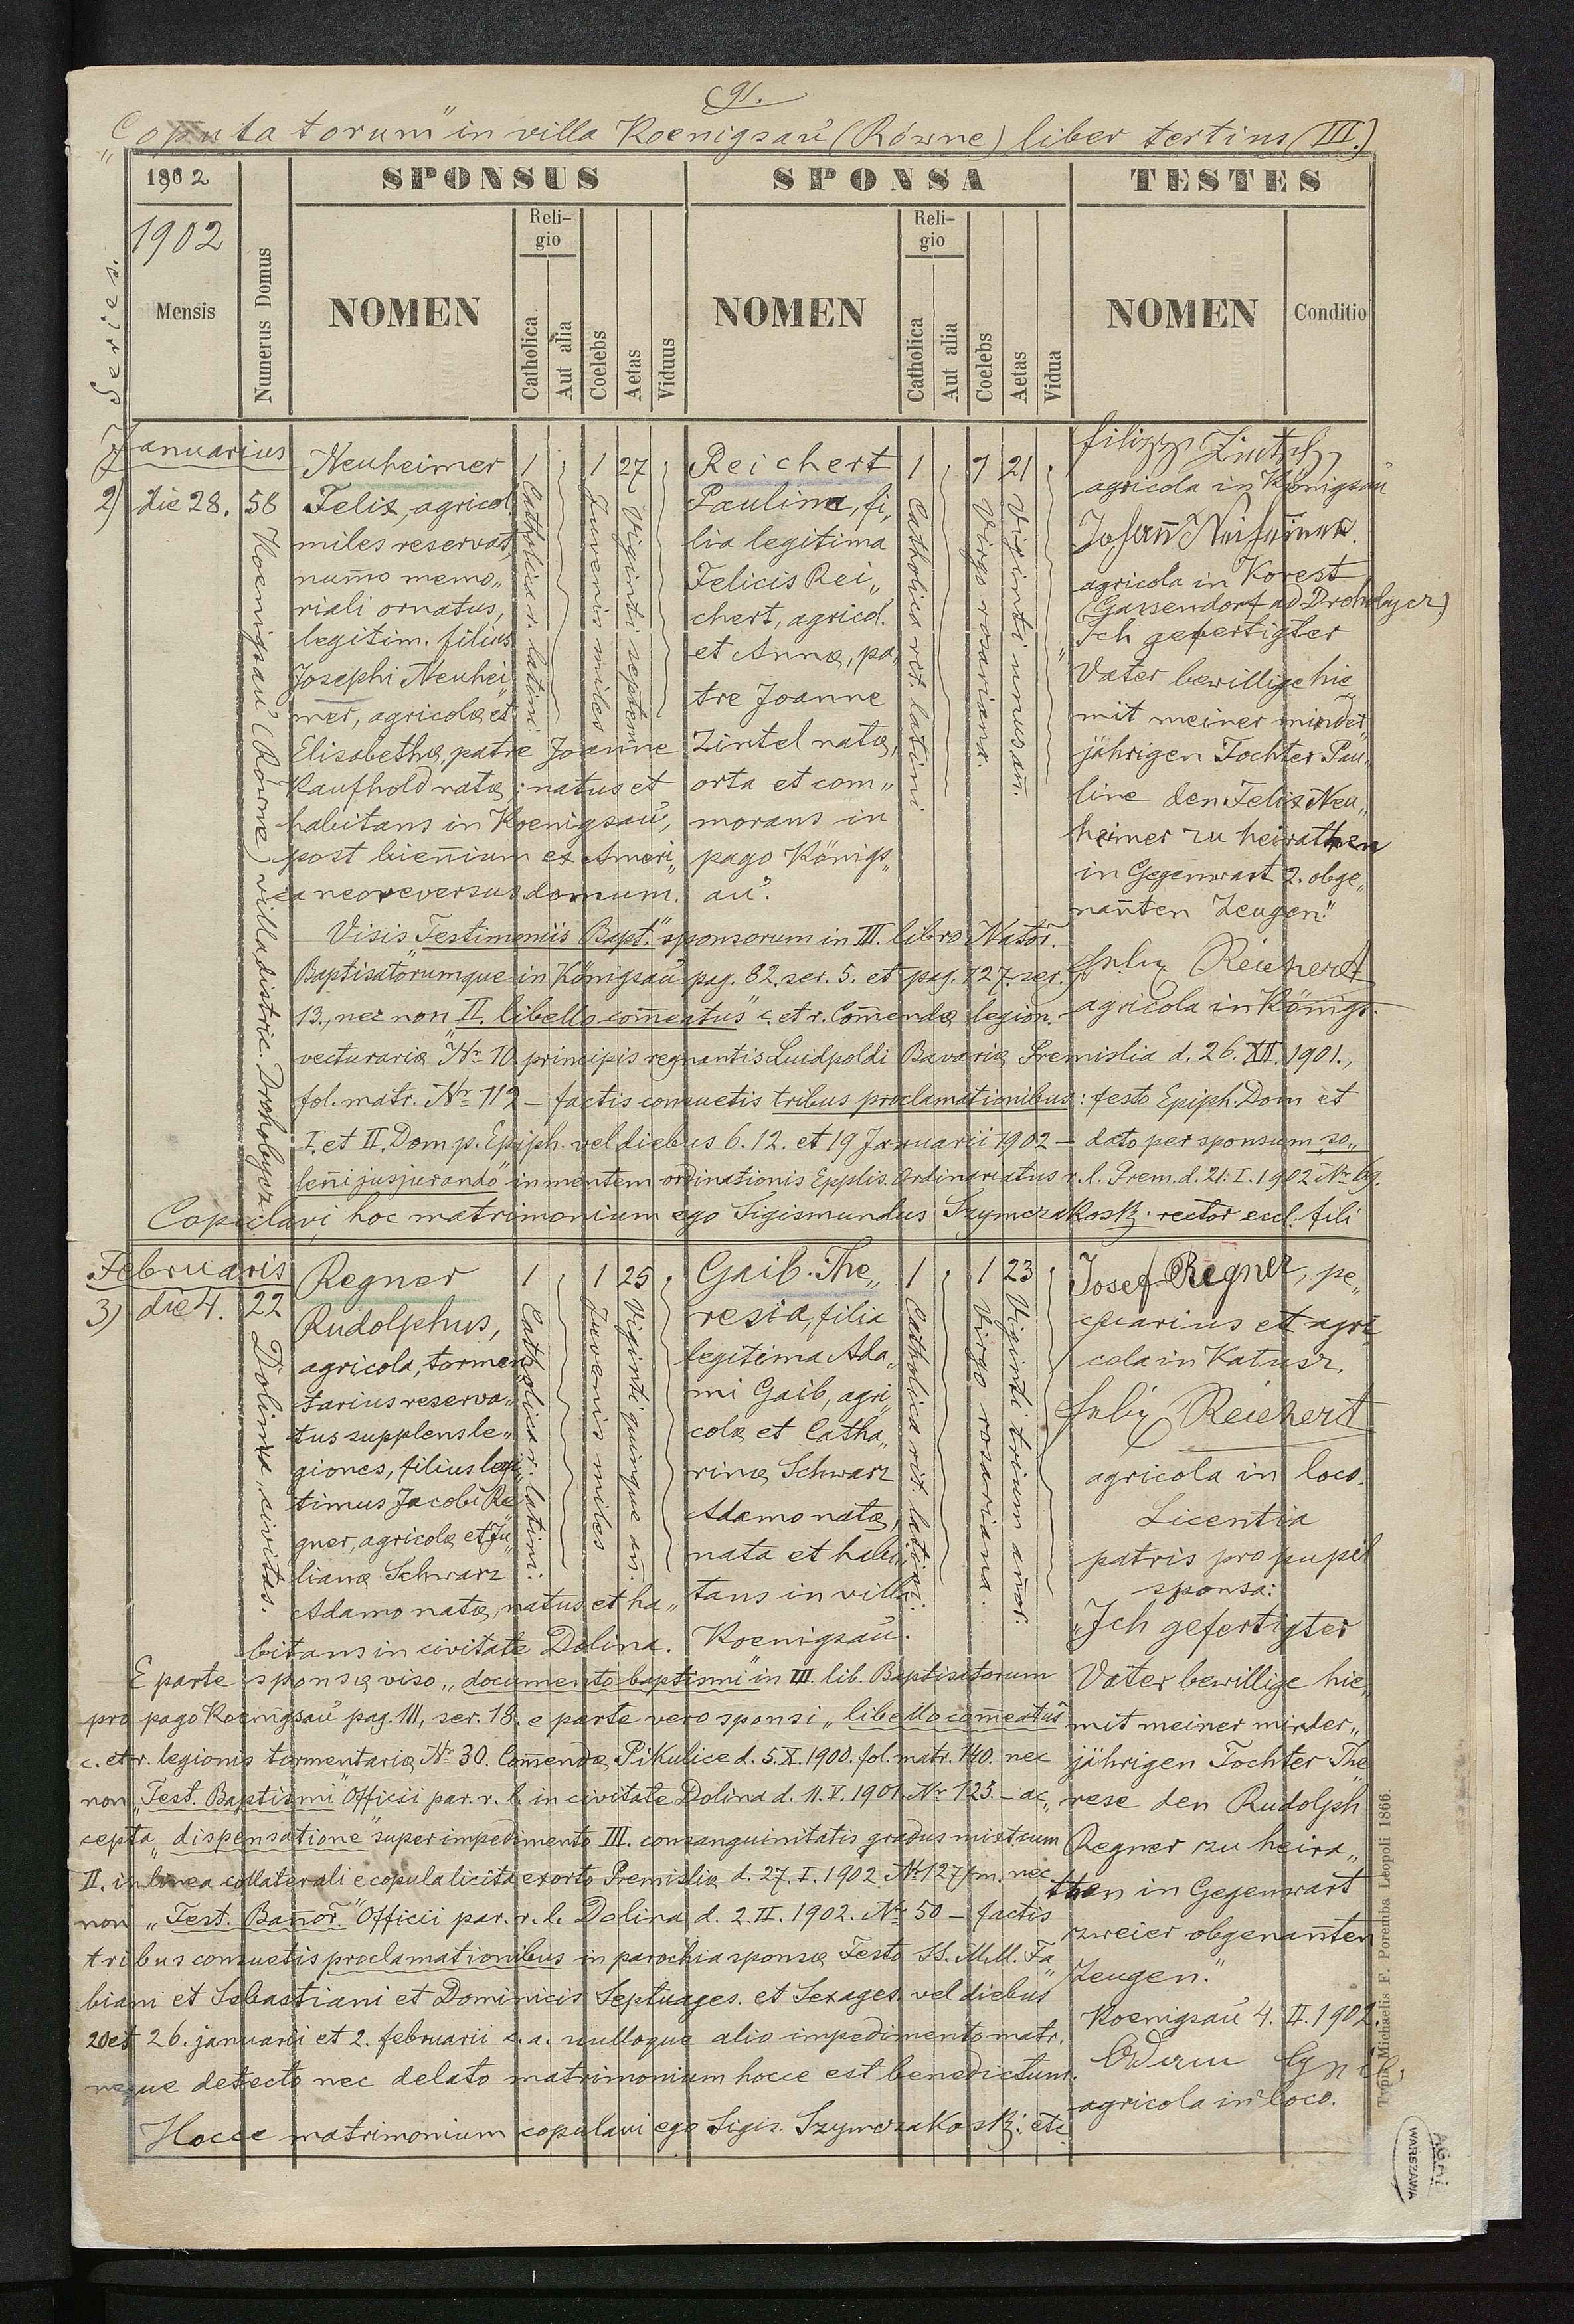 91.
"Copulatorum" in villa Koenigsau (Równe) liber tertius (III.)
1902
SPONSUS
SPONSA
TESTES
1902
Series.
Mensis
Numerus Domus
NOMEN
Religio
Catholica
Aut alia
Coelebs
Aetas
Viduus
NOMEN
Religio
Catholica
Aut alia
Coelebs
Aetas
Vidua
NOMEN
Conditio
Januarius
2) die 28.
58
Koenigsau (Równe) villa distric. Drohobycz
Neuheimer
Felix, agricol
miles reservat,
num̄o memo„
riali ornatus,
legitim. filius
Josephi Neuhei„
mer, agricolæ et
Elisabethæ, patre Joanne
Kaufhold natæ; natus et
habitans in Koenigsau,
post bien̄ium ex Ameri„
ca reversus domum.
1
Catholica r. latini
1
Juvenis miles
27
Viginti septem
Reichert
Paulina, fi„
lia legitima
Felicis Rei„
chert, agricol.
et Annæ, pa„
tre Joanne
Zintel natæ,
orta et com„
morans in
pago Königs„
au.
1
Catholica rit. latini
1
Virgo rosariana.
21
Viginti unus an̄.
agricola in Königsau
agricola in Korest
(Gassendorf ad Drohobycz)
Ich gefertigter
Vater bewillige hie„
mit meiner minder„
jährigen Tochter Pau„
line den Felix Neu„
heimer zu heirathen
in Gegenwart 2. obge„
nan̄ten Zeugen."
Reichert
agricola in Königs.
Visis "Testimoniis Bapt." sponsorum in III. libro Nator.
Baptisatorumque in Königsau pag. 82. ser. 5. et pag. 127. ser.
13., nec non "II. libello com̄eatus" c. et r. Com̄endæ legion.
vecturariæ Nr 10. principis regnantis Luidpoldi Bavariæ Premislia d. 26. XII. 1901.,
fol. matr. Nr 112 – factis consuetis tribus proclamationibus: festo Epiph. Dom et
I. et II. Dom. p. Epiph. vel diebus 6. 12. et 19 Januarii 1902 – dato per sponsum „so„
len̄i jusjurando" in mentem ordinationis Epplis. Ordinariatus r. l. Prem. d. 21. I. 1902 Nr 69.
Copulavi hoc matrimonium ego Sigismundus Szymczakosk: rector eccl. fili
Februaris
3) die 4.
22
Dolina, civitas.
Regner
Rudolphus,
agricola, tormen
tarius reserva„
tus supplens le„
giones, filius legi
timus Jacobi Re
gner, agricolæ et Ju„
lianæ Schwarz
Adamo natæ, natus et ha„
bitans in civitate Dolina.
1
Catholica r. latini.
1
Juvenis miles
25
Viginti quinque an̄.
Gaib. The„
resia, filia
legitima Ada„
mi Gaib, agri„
colæ et Catha„
rinæ Schwarz
Adamo natæ,
nata et habi„
tans in villa
Koenigsau.
1
Catholica rit latini.
1
Virgo rosariana.
23
Viginti trium an̄or.
Josef Regner, pe„
cuarius et agri
cola in Katusz.
Reichert
agricola in loco.
Licentia
patris pro pupil
sponsa:
„Ich gefertigter
Vater bewillige hie„
mit meiner minder„
jährigen Tochter The
rese den Rudolph
Regner zu heira„
then in Gegenwart
zweier obgenan̄ten
Zeugen."
Koenigsau 4. II. 1902.
agricola in loco.
E parte sponsæ viso „documento baptismi" in III. lib. Baptisatorum
pro pago Koenigsau pag. 111, ser. 18. e parte vero sponsi „libello com̄eatus"
c. et r. legionis tormentariæ Nr 30. Com̄endæ Pikulice d. 5. X. 1900. fol. matr. 140. nec
non „Test. Baptismi" Officii par. r. l. in civitate Dolina d. 11. V. 1901. Nr 125. – ac„
cepta „dispensatione" super impedimento III. consanguinitatis gradus mixt. cum
II. in linea collaterali e copula licita exorto Premislia d. 27. I. 1902 Nr 127/m. nec
non „Test. Ban̄or." Officii par. r. l. Dolina d. 2. II. 1902. Nr 50 – factis
tribus consuetis proclamationibus in parochia sponsæ Festo SS. M.M. Fa„
biani et Sebastiani et Dominicis Septuages. et Sexages. vel diebus
20 et 26. januarii et 2. februarii c. a. nulloque alio impedimento matr.
neque detecto nec delato matrimonium hocce est benedictum.
Hocce matrimonium copulavi ego Sigis. Szymczakosk: etc.
Typis Michaelis F. Poremba Leopoli 1866.
WARSZAWA